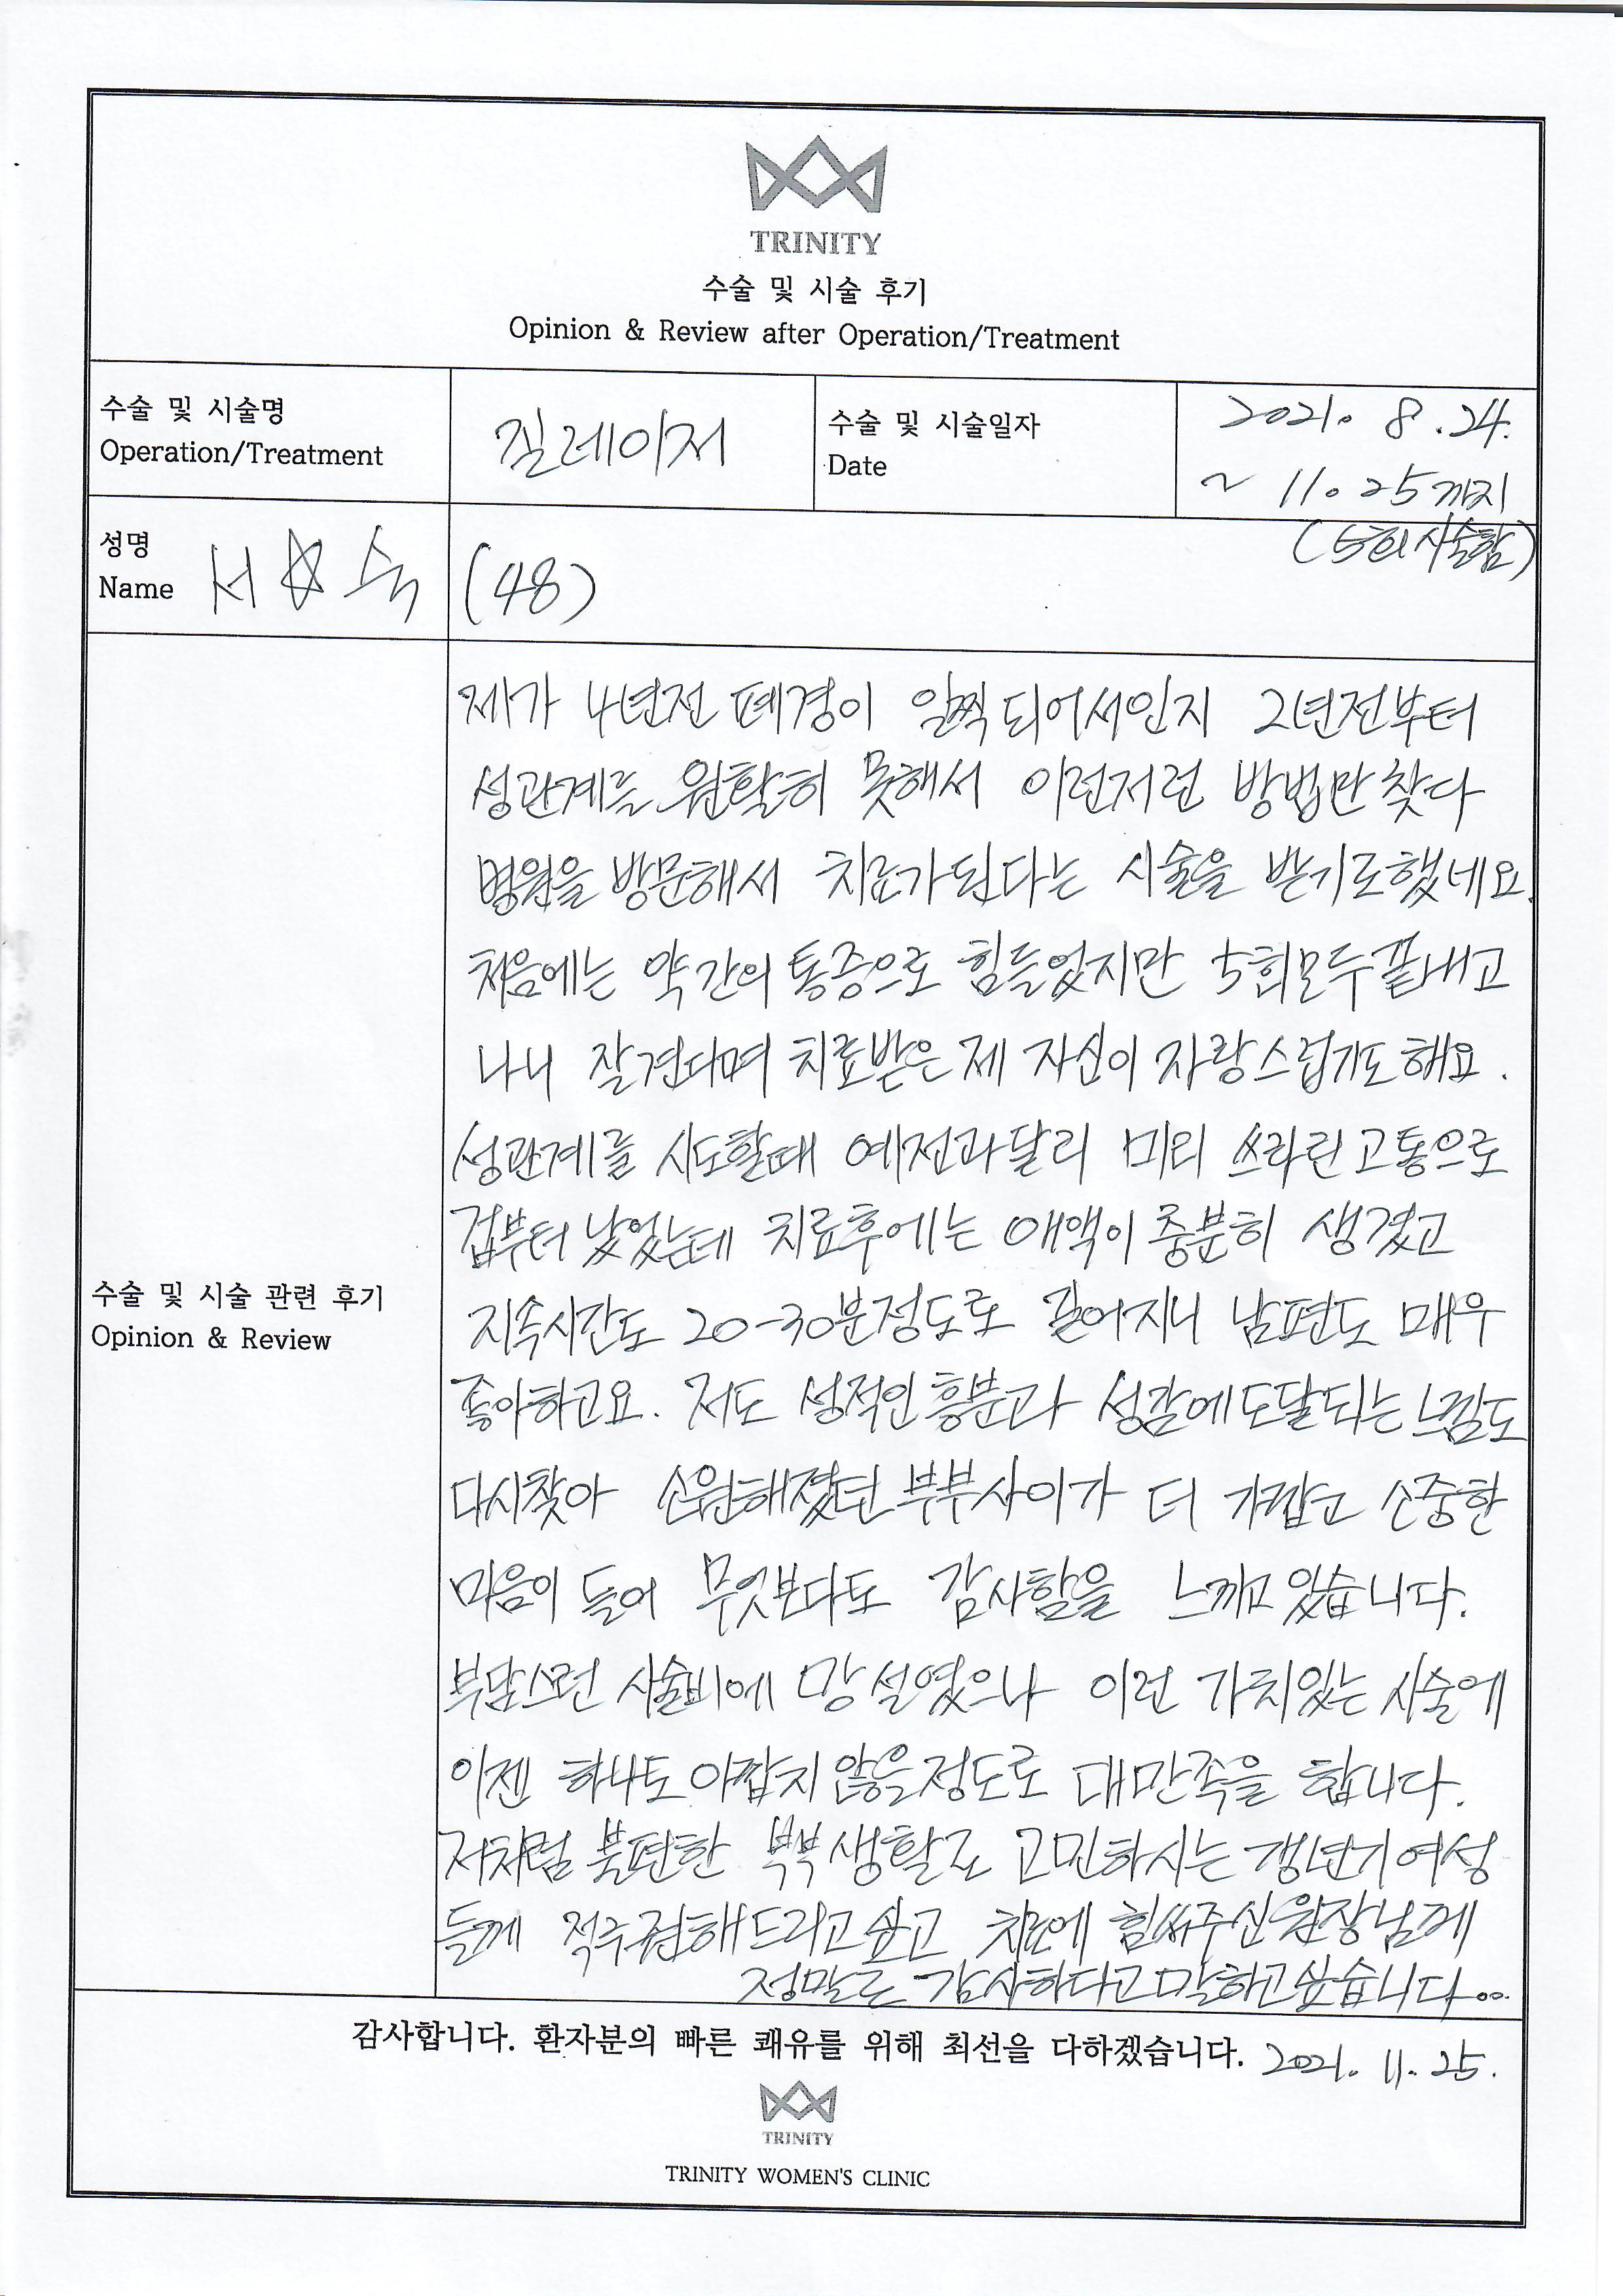 TRINITY
수술 및 시술 후기
Opinion & Review after Operation/Treatment
수술 및 시술명
Operation/Treatment
질레이저
수술 및 시술일자
Date
2021. 8. 24.
~ 11. 25까지
(5회시술함)
성명
Name
서☆숙
(48)
제가 4년전 폐경이 일찍되어서인지 2년전부터
성관계를 원활히 못해서 이런저런 방법만 찾다
병원을 방문해서 치료가된다는 시술을 받기로했네요.
처음에는 약간의 통증으로 힘들었지만 5회모두끝내고
나니 잘견디며 치료받은 제 자신이 자랑스럽기도해요.
성관계를 시도할때 예전과달리 미리 쓰라린고통으로
겁부터 났었는데 치료후에는 애액이 충분히 생겼고
지속시간도 20-30분정도로 길어지니 남편도 매우
좋아하고요. 저도 성적인 흥분과 성감에도달되는느낌도
다시찾아 소원해졌던 부부사이가 더 가깝고 소중한
마음이 들어 무엇보다도 감사함을 느끼고있습니다.
부담스런 시술비에 망설였으나 이런 가치있는 시술에
이젠 하나도 아깝지않을정도로 대만족을 합니다.
저처럼 불편한 부부생활로 고민하시는 갱년기여성
들께 적극권해드리고싶고 치료에 힘써주신원장님께
정말로 감사하다고말하고싶습니다...
감사합니다. 환자분의 빠른 쾌유를 위해 최선을 다하겠습니다. 2021. 11. 25.
TRINITY
TRINITY WOMEN'S CLINIC
수술 및 시술 관련 후기
Opinion & Review